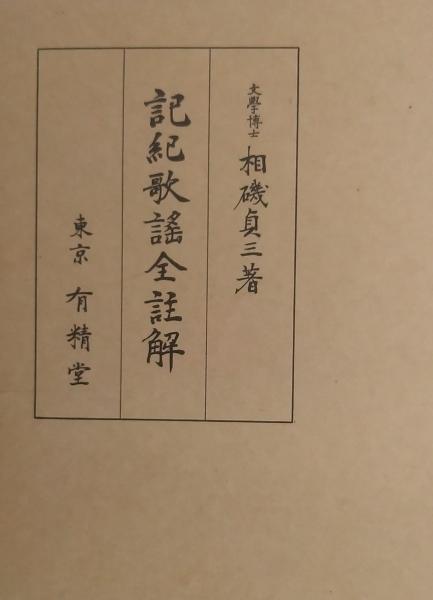 文學博士 相磯貞三著
記紀歌謠全註解
東京 有精堂